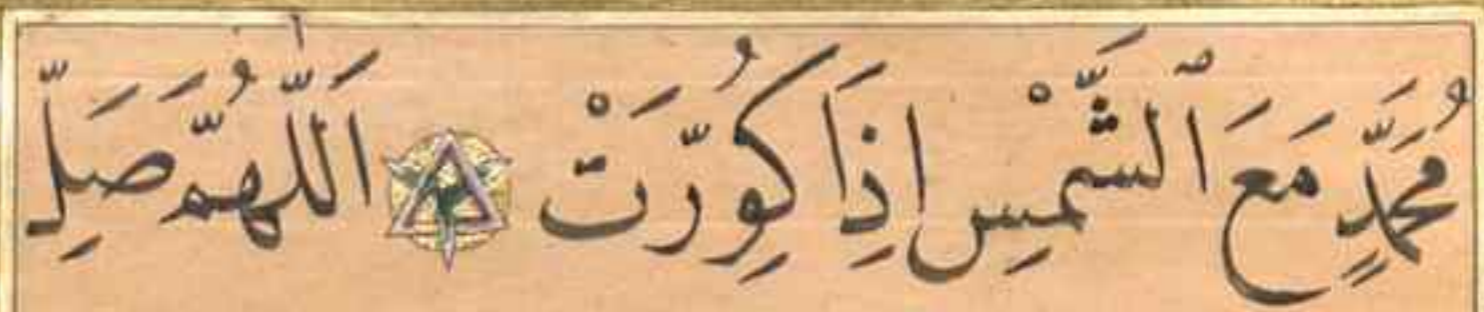 مُحَمَّدٍ مَعَ ٱلشَّمْسِ اِذَا كُوِّرَتْ اَللّٰهُمَّ صَلِّ